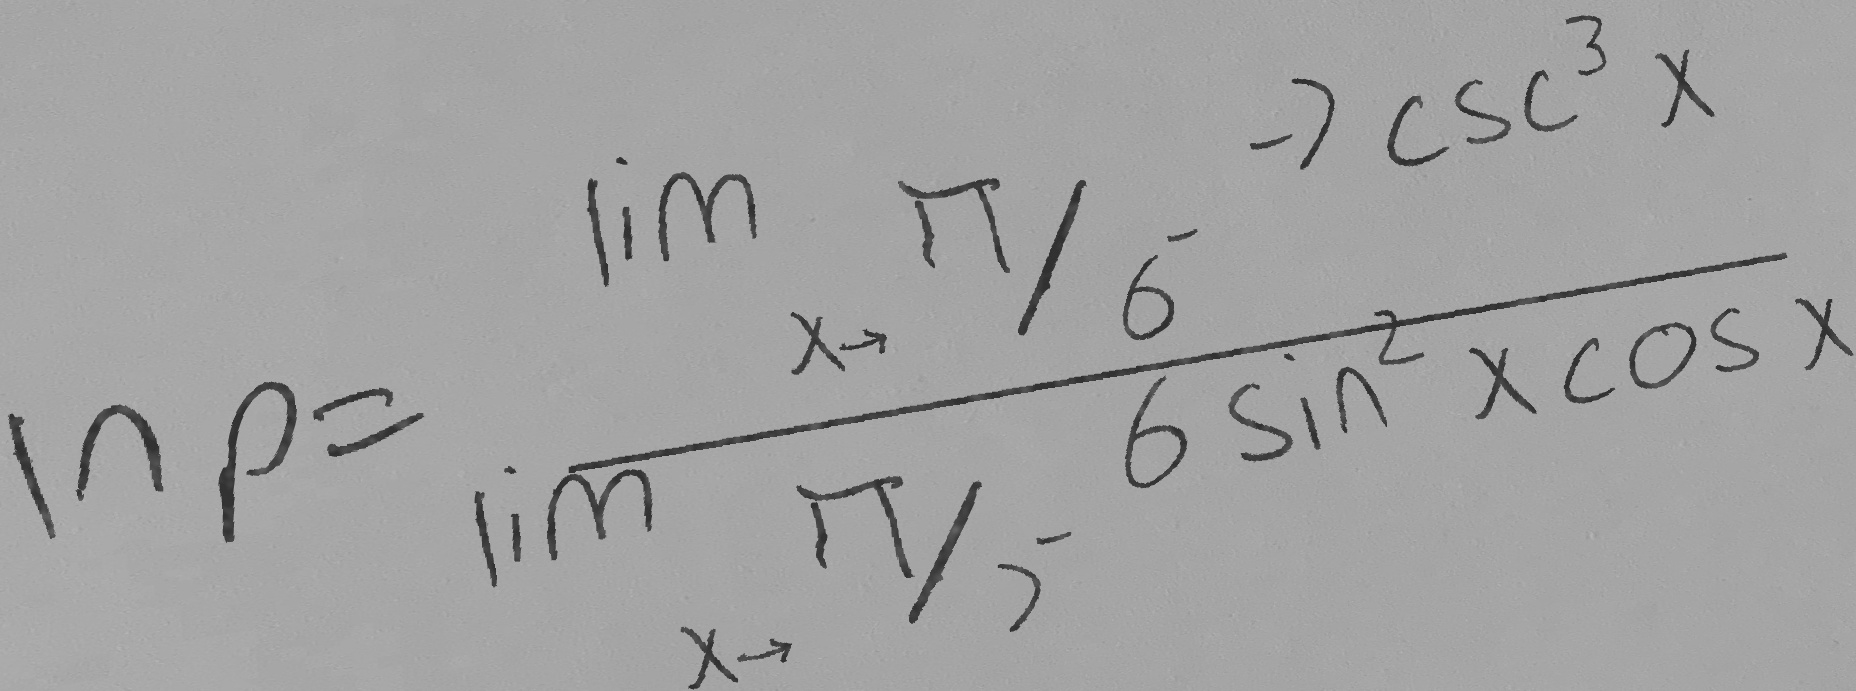 ln p = \frac{\lim_{x \to \pi/6^-} -7 csc^3 x}{\lim_{x \to \pi/7^-} 6 sin^2 x cos x}